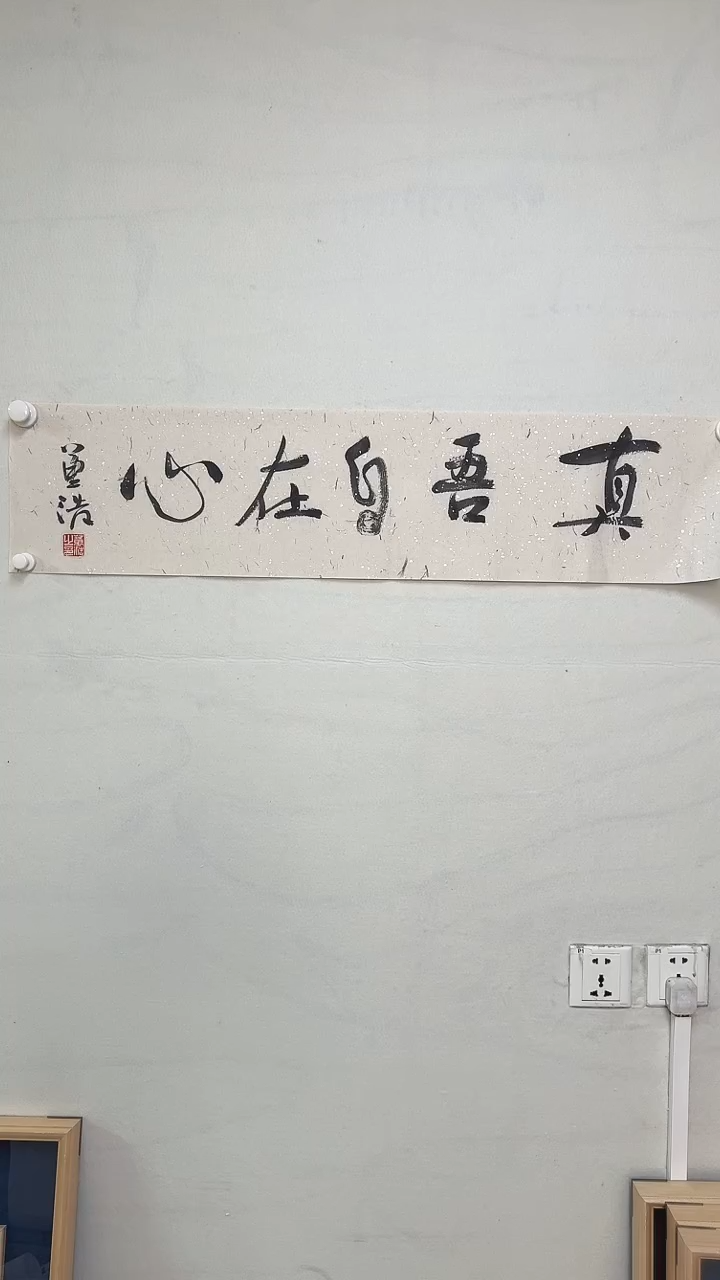 真吾自在心
浩